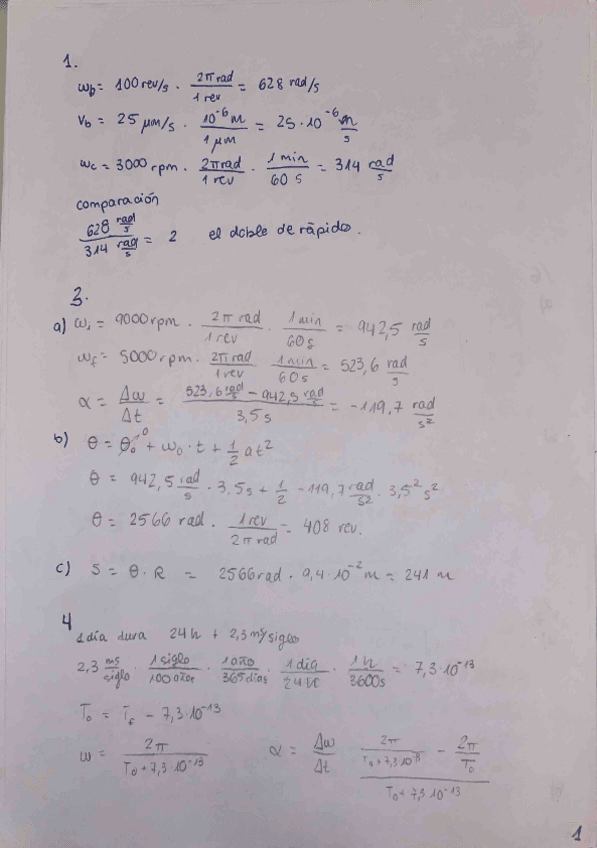 1.
ω_b = 100 rev/s · 2π rad / 1 rev = 628 rad/s
v_b = 25 μm/s · 10^-6 m / 1 μm = 25·10^-6 m/s
ω_c = 3000 rpm · 2π rad / 1 rev · 1 min / 60 s = 314 rad/s
comparación
628 rad/s / 314 rad/s = 2 el doble de rápido.
3.
a) ω_i = 9000 rpm · 2π rad / 1 rev · 1 min / 60 s = 942,5 rad/s
ω_f = 5000 rpm · 2π rad / 1 rev 1 min / 60 s = 523,6 rad/s
α = Δω / Δt = 523,6 rad/s - 942,5 rad/s / 3,5 s = -119,7 rad/s²
b) θ = θ_0 ^0 + ω_0 · t + 1/2 at²
θ = 942,5 rad/s · 3,5 s + 1/2 -119,7 rad/s² · 3,5² s²
θ = 2566 rad · 1 rev / 2π rad = 408 rev.
c) S = θ · R = 2566 rad · 9,4·10^-2 m = 241 m
4
1 día dura 24 h + 2,3 ms/siglo
2,3 ms/siglo · 1 siglo / 100 años · 1 año / 365 días · 1 día / 24 h · 1 h / 3600 s = 7,3·10^-13
T_0 = T_f - 7,3·10^-13
ω = 2π / T_0 + 7,3·10^-13 α = Δω / Δt 2π / T_0 + 7,3·10^-13 - 2π / T_0 / T_0 + 7,3·10^-13
1